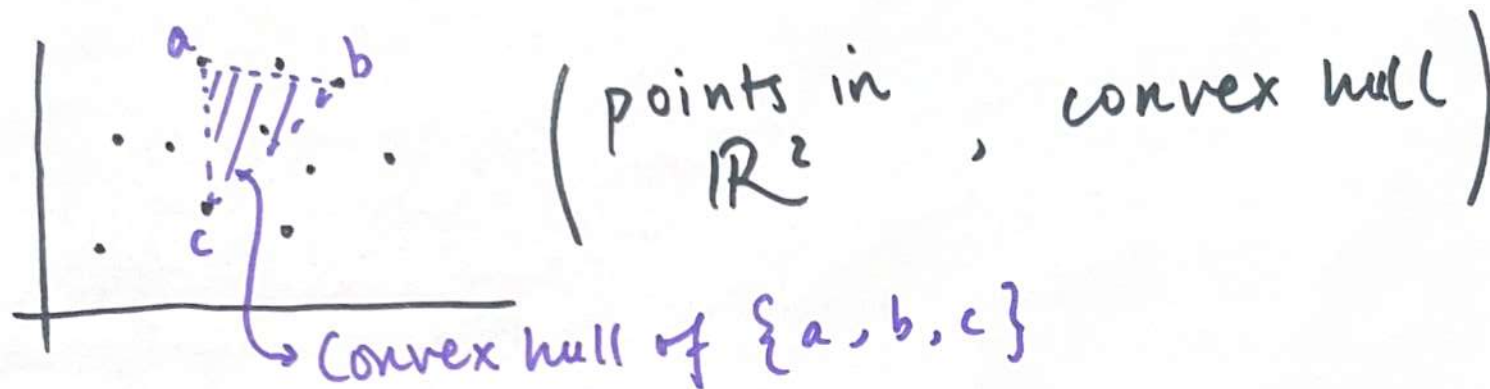 a
b
c
( points in
ℝ² , convex hull )
Convex hull of {a, b, c}